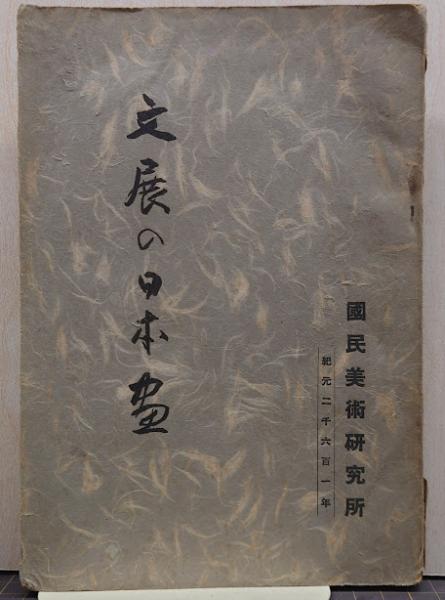 文展の日本画
國民美術研究所
紀元二千六百一年